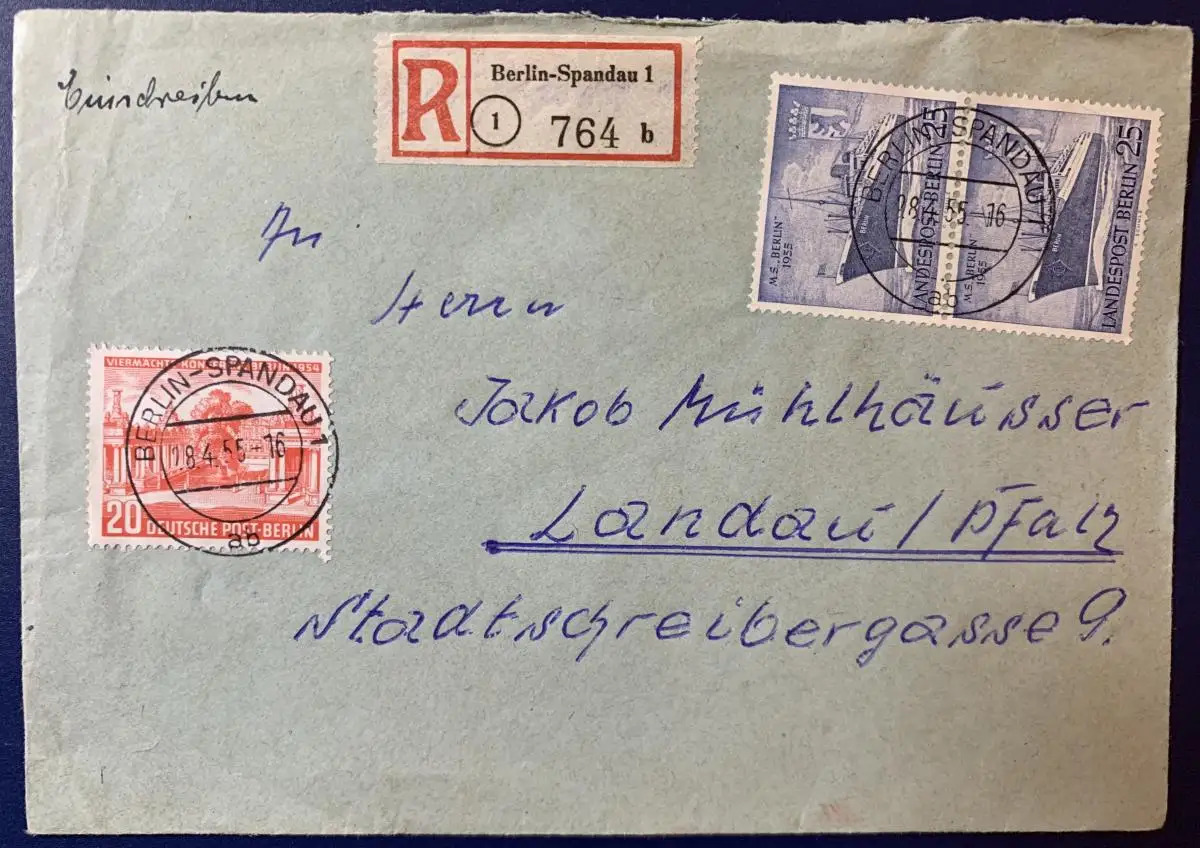 Einschreiben
R
Berlin-Spandau 1
1
764 b
M.S. „BERLIN"
1955
LANDESPOST BERLIN 25
M.S. „BERLIN
1955
BERLIN
LANDESPOST BERLIN 25
BERLIN
BERLIN-SPANDAU 1
28.4.55-16
ab
An
Herrn
Jakob Mühlhäusser
Landau/Pfalz
Stadtschreibergasse 9.
1954
BERLIN-SPANDAU 1
28.4.55-16
ab
20 DEUTSCHE POST-BERLIN